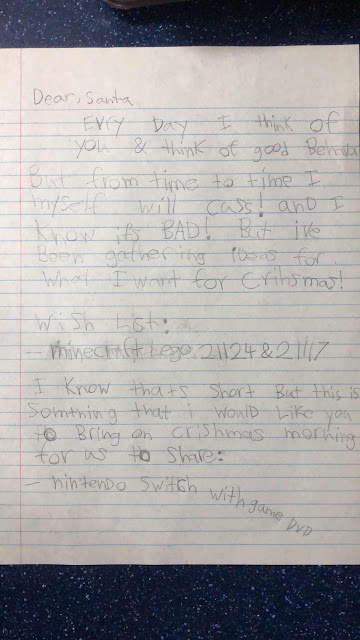 Dear, Santa
Evry Day I think of
you & think of good Behavior
But from time to time I
myself will cass! and I
Know its BAD! But ive
Been gathering ideas for
What I want for Crihsmas!
Wish List:
- minecraft Lego 21124 & 21117
I Know thats short But this is
Somthing that i would Like you
to Bring on crishmas morning
for us to share:
- nintendo switch with game DVD